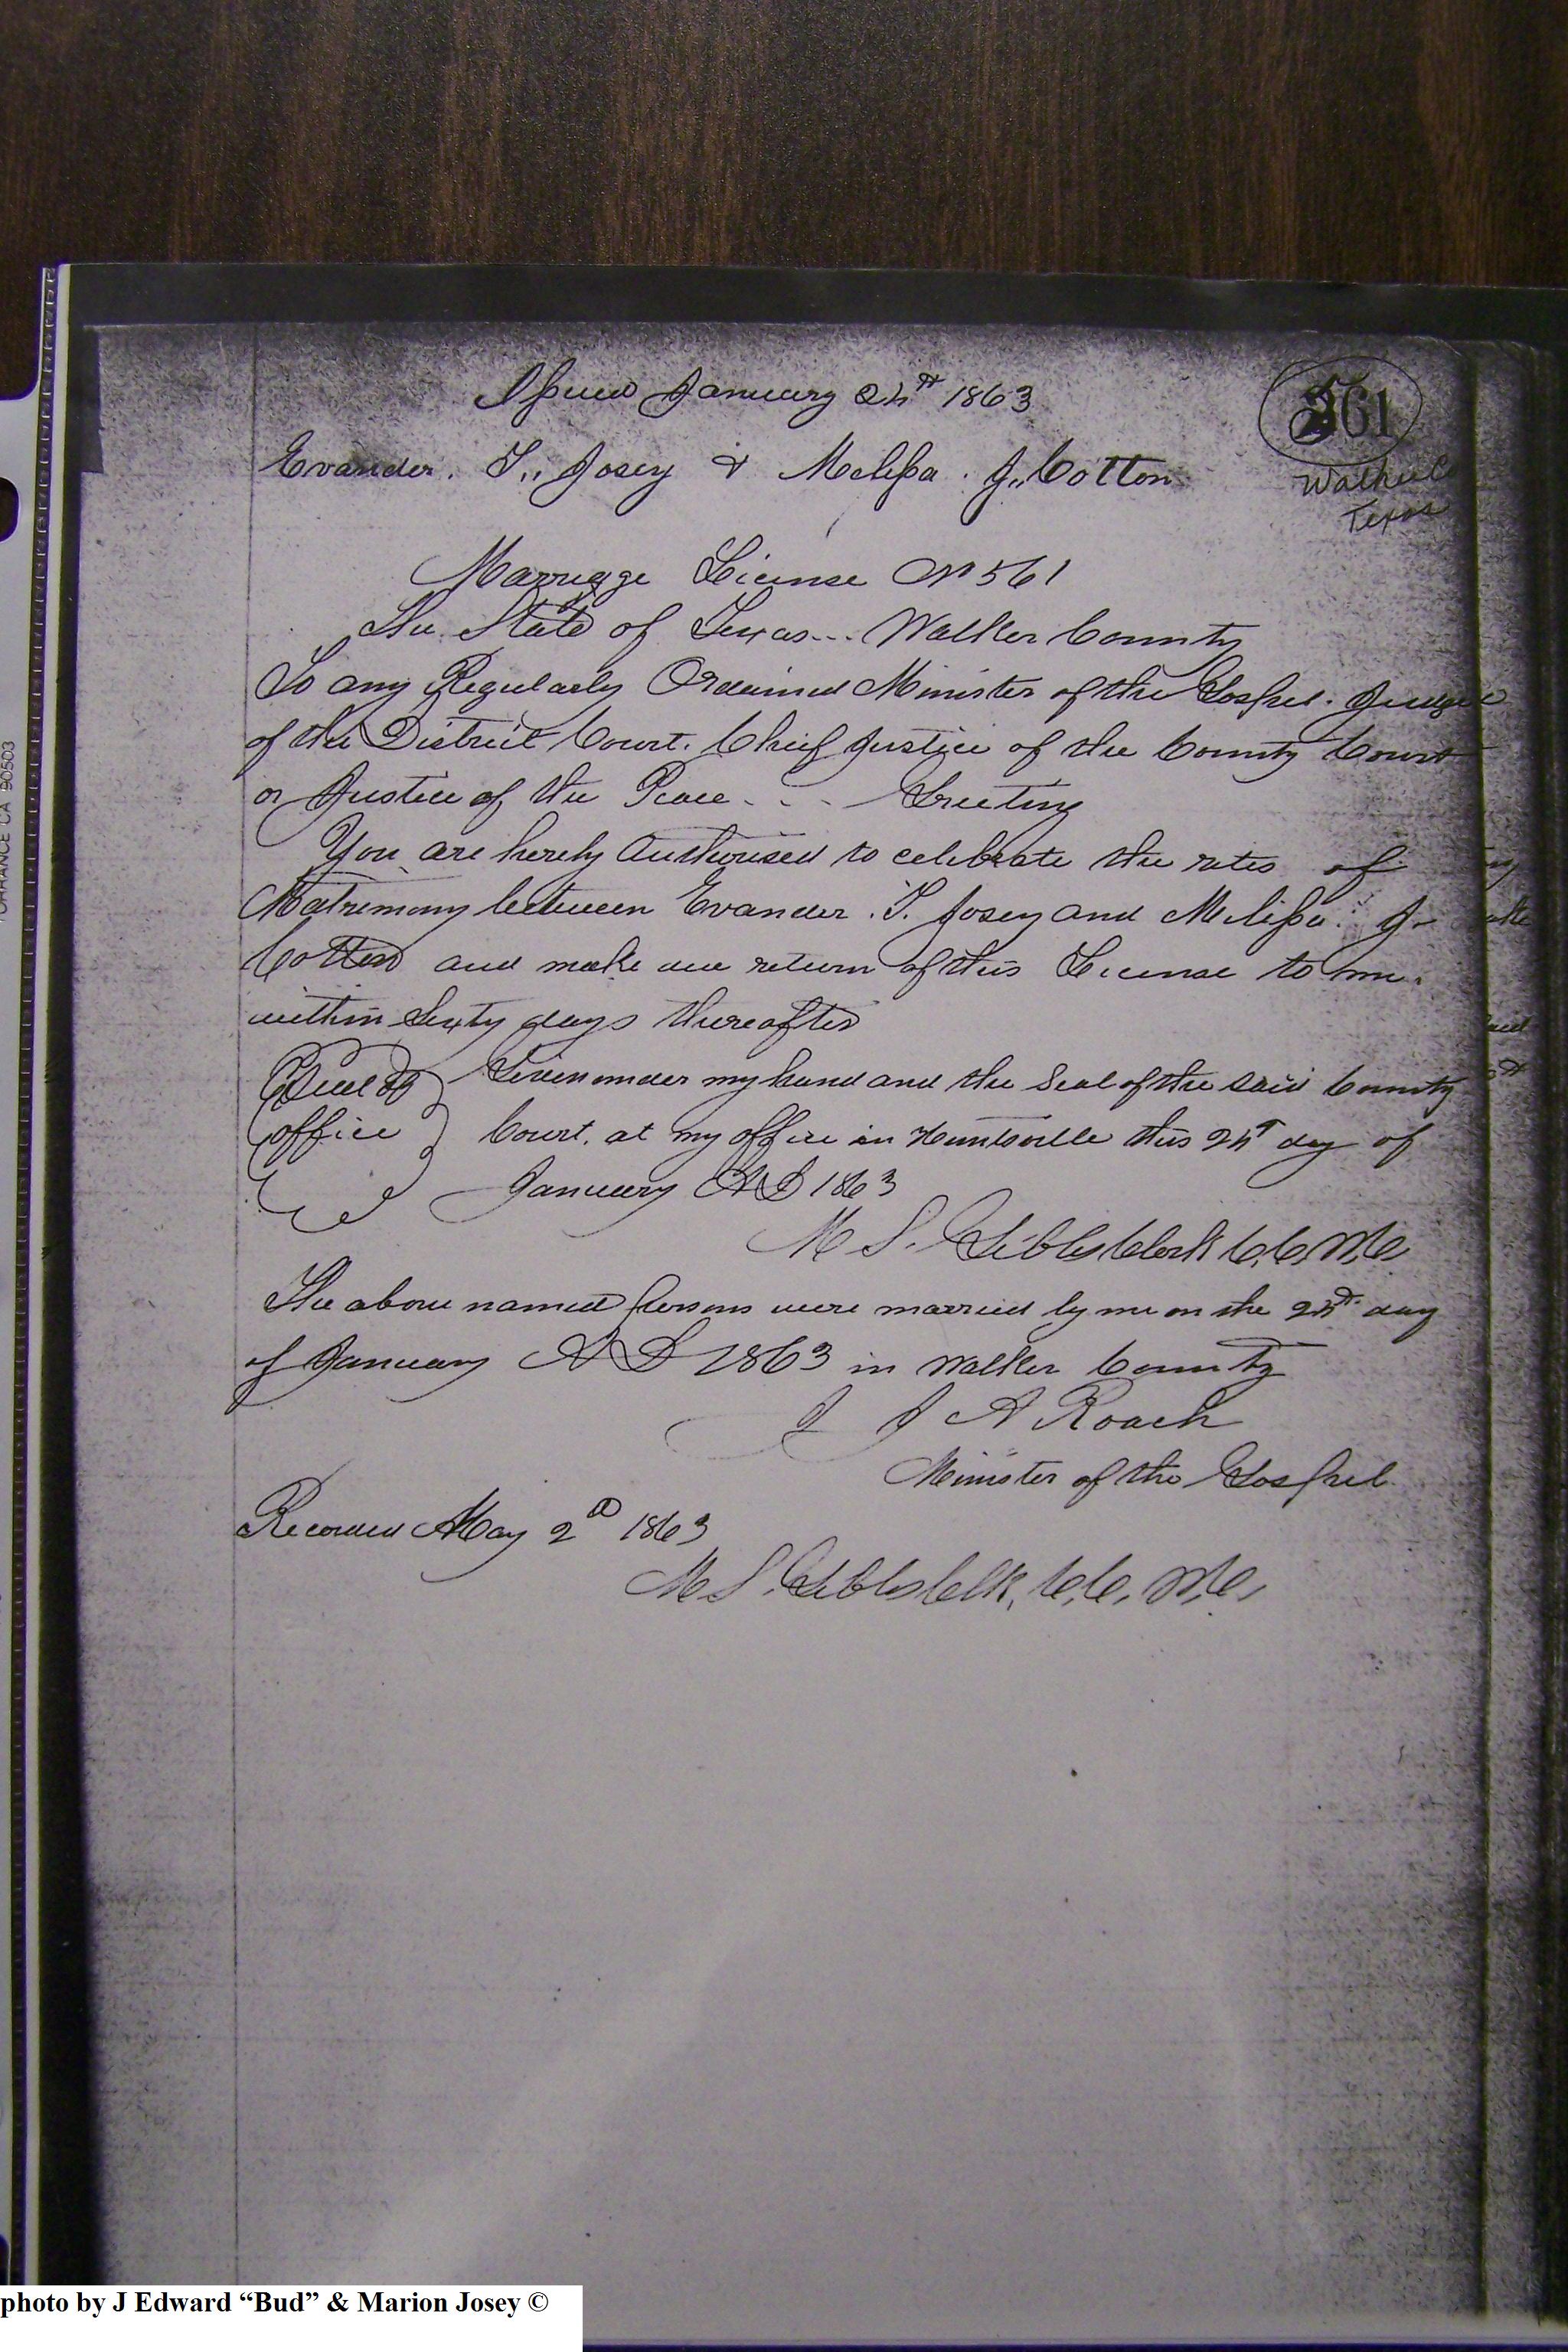 Issued January 24th 1863
561
Evander. T,, Josey & Melissa. J,, Cotton
Walker C
Texas
Marriage License No 561
The State of Texas... Walker County
To any Regularly Ordained Minister of the Gospel. Judge
of the District Court. Chief Justice of the County Court
or Justice of the Peace - . . - Greeting
You are hereby Authorised to celebrate the rites of
Matrimony between Evander. T. Josey and Melissa. J.
Cotton and make due return of this License to me.
within Sixty days thereafter
Seal of Given under my hand and the Seal of the said County
office Court. at my office in Huntsville this 24th day of
January AD 1863
M S. Gibbs Clerk C,C,W,C,
The above named persons were married by me on the 24th day
of January AD 1863 in Walker County
J A Roach
Minister of the Gospel
Recorded May 2d 1863
M S. Gibbs Clk, C,C, W,C,
TORRANCE CA 90503
photo by J Edward “Bud” & Marion Josey ©